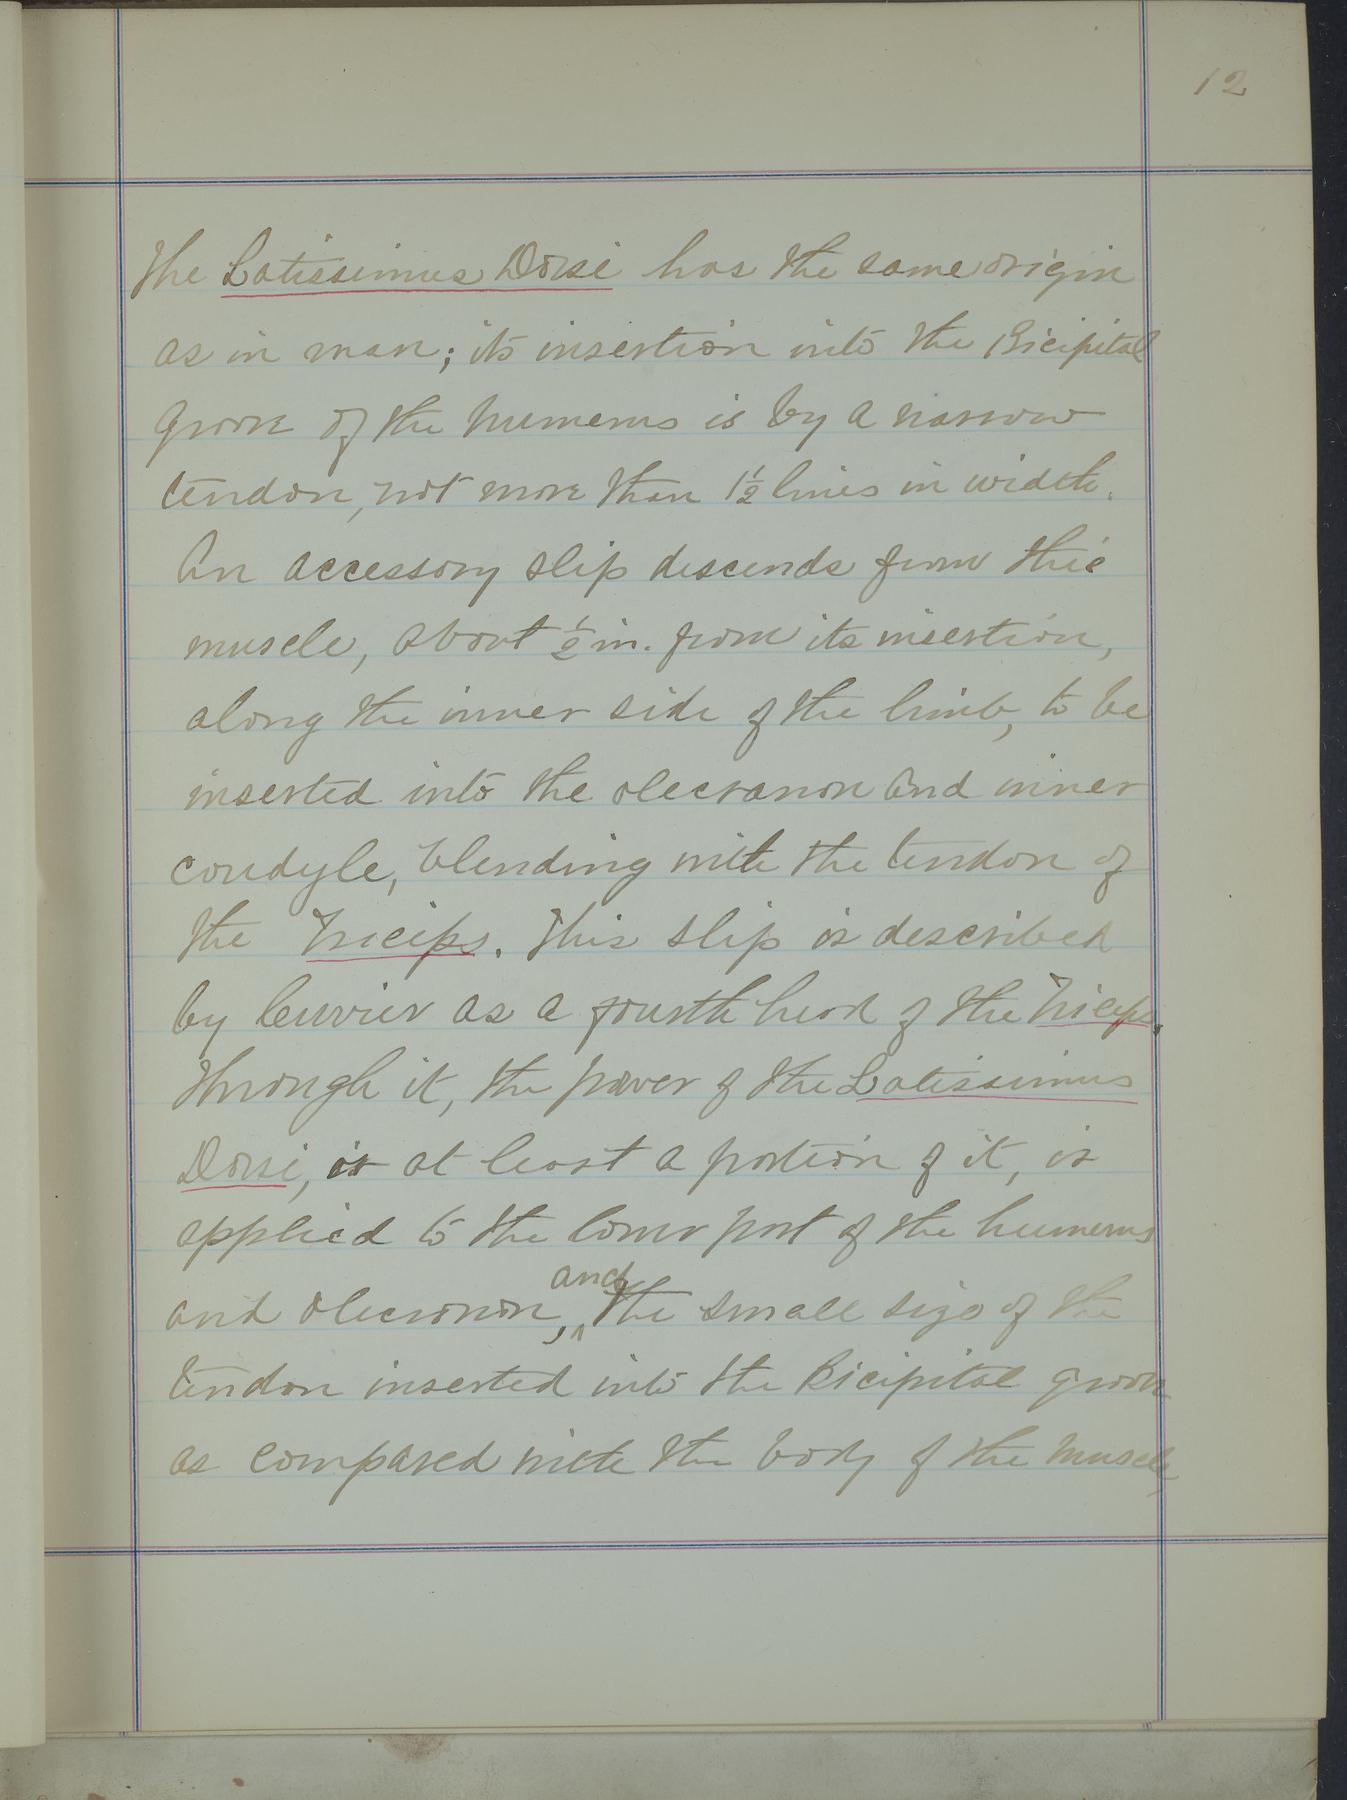 12
The Latissimus Dorsi has the same origin
as in man; its insertion into the Bicipital
groove of the humerus is by a narrow
tendon, not more than 1½ lines in width.
An accessory slip descends from this
muscle, about ½ in. from its insertion,
along the inner side of the limb, to be
inserted into the olecranon and inner
condyle, blending with the tendon of
the Triceps. This slip is described
by Cuvier as a fourth head of the Triceps.
Through it, the power of the Latissimus
Dorsi, or at least a portion of it, is
applied to the lower part of the humerus
and olecranon, and the small size of the
tendon inserted into the Bicipital groove
as compared with the body of the muscle,